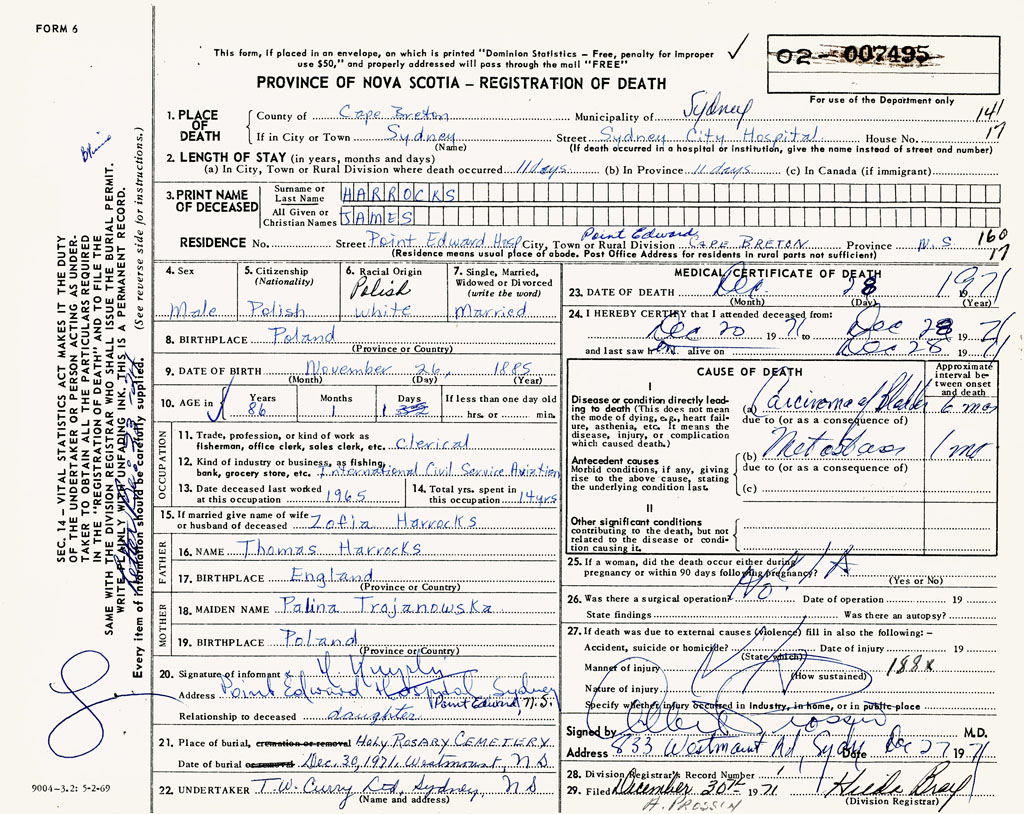 FORM 6
02-007495
This form, if placed in an envelope, on which is printed "Dominion Statistics – Free, penalty for improper
use $50," and properly addressed will pass through the mail "FREE"
PROVINCE OF NOVA SCOTIA – REGISTRATION OF DEATH
For use of the Department only
1. PLACE OF DEATH
County of Cape Breton Municipality of Sydney 14/
If in City or Town Sydney Street Sydney City Hospital House No. 17
(Name) (If death occurred in a hospital or institution, give the name instead of street and number)
2. LENGTH OF STAY (in years, months and days)
(a) In City, Town or Rural Division where death occurred 11 days (b) In Province 11 days (c) In Canada (if immigrant)
3. PRINT NAME OF DECEASED
Surname or Last Name HARROCKS
All Given or Christian Names JAMES
RESIDENCE No. Street Point Edward Hosp City, Town or Rural Division Point Edward CAPE BRETON Province N.S 160 17
(Residence means usual place of abode. Post Office Address for residents in rural parts not sufficient)
4. Sex Male
5. Citizenship (Nationality) Polish
6. Racial Origin Polish white
7. Single, Married, Widowed or Divorced (write the word) Married
8. BIRTHPLACE Poland
(Province or Country)
9. DATE OF BIRTH November 26, 1885
(Month) (Day) (Year)
10. AGE in Years 86 Months 1 Days 1 If less than one day old hrs. or min.
OCCUPATION
11. Trade, profession, or kind of work as fisherman, office clerk, sales clerk, etc. Clerical
12. Kind of industry or business, as fishing, bank, grocery store, etc. International Civil Service Aviation
13. Date deceased last worked at this occupation 1965
14. Total yrs. spent in this occupation 14 yrs
15. If married give name of wife or husband of deceased Zofia Harrocks
FATHER
16. NAME Thomas Harrocks
17. BIRTHPLACE England
(Province or Country)
MOTHER
18. MAIDEN NAME Palina Trojanowska
19. BIRTHPLACE Poland
(Province or Country)
20. Signature of informant
Address Point Edward Hospital Sydney
Point Edward, N.S.
Relationship to deceased daughter
21. Place of burial, cremation or removal HOLY ROSARY CEMETERY
Date of burial or removal Dec. 30, 1971. Westmount, N.S
22. UNDERTAKER T.W. Curry Ltd, Sydney, N S
(Name and address)
MEDICAL CERTIFICATE OF DEATH
23. DATE OF DEATH Dec. 28 1971
(Month) (Day) (Year)
24. I HEREBY CERTIFY that I attended deceased from:
Dec 20 1971 Dec 28 1971
and last saw him alive on Dec 28 1971
CAUSE OF DEATH
Approximate interval between onset and death
I
Disease or condition directly leading to death (This does not mean the mode of dying, e.g., heart failure, asthenia, etc. It means the disease, injury, or complication which caused death.)
(a) Carcinoma of Bladder 6 mos
due to (or as a consequence of)
Antecedent causes
Morbid conditions, if any, giving rise to the above cause, stating the underlying condition last.
(b) Metastases 1 mo
due to (or as a consequence of)
(c)
II
Other significant conditions
contributing to the death, but not related to the disease or condition causing it.
25. If a woman, did the death occur either during pregnancy or within 90 days following pregnancy? N/A
(Yes or No)
26. Was there a surgical operation? No. Date of operation 19
State findings Was there an autopsy?
27. If death was due to external causes (violence) fill in also the following: –
Accident, suicide or homicide? Date of injury 19
(State which)
Manner of injury 188x
(How sustained)
Nature of injury
Specify whether injury occurred in industry, in home, or in public place
Signed by M.D.
Address 833 Westmount Rd, Sydney Date Dec 27 1971
28. Division Registrar's Record Number 1
29. Filed December 30th 1971 Hilda Bray
A. PROSSIN (Division Registrar)
9004–3.2: 5-2-69
SEC. 14 – VITAL STATISTICS ACT MAKES IT THE DUTY
OF THE UNDERTAKER OR PERSON ACTING AS UNDER-
TAKER TO OBTAIN ALL THE PARTICULARS REQUIRED
IN THE "REGISTRATION OF DEATH" AND TO FILE THE
SAME WITH THE DIVISION REGISTRAR WHO SHALL ISSUE THE BURIAL PERMIT.
WRITE PLAINLY WITH UNFADING INK. THIS IS A PERMANENT RECORD.
Every item of information should be carefully supplied. (See reverse side for instructions.)